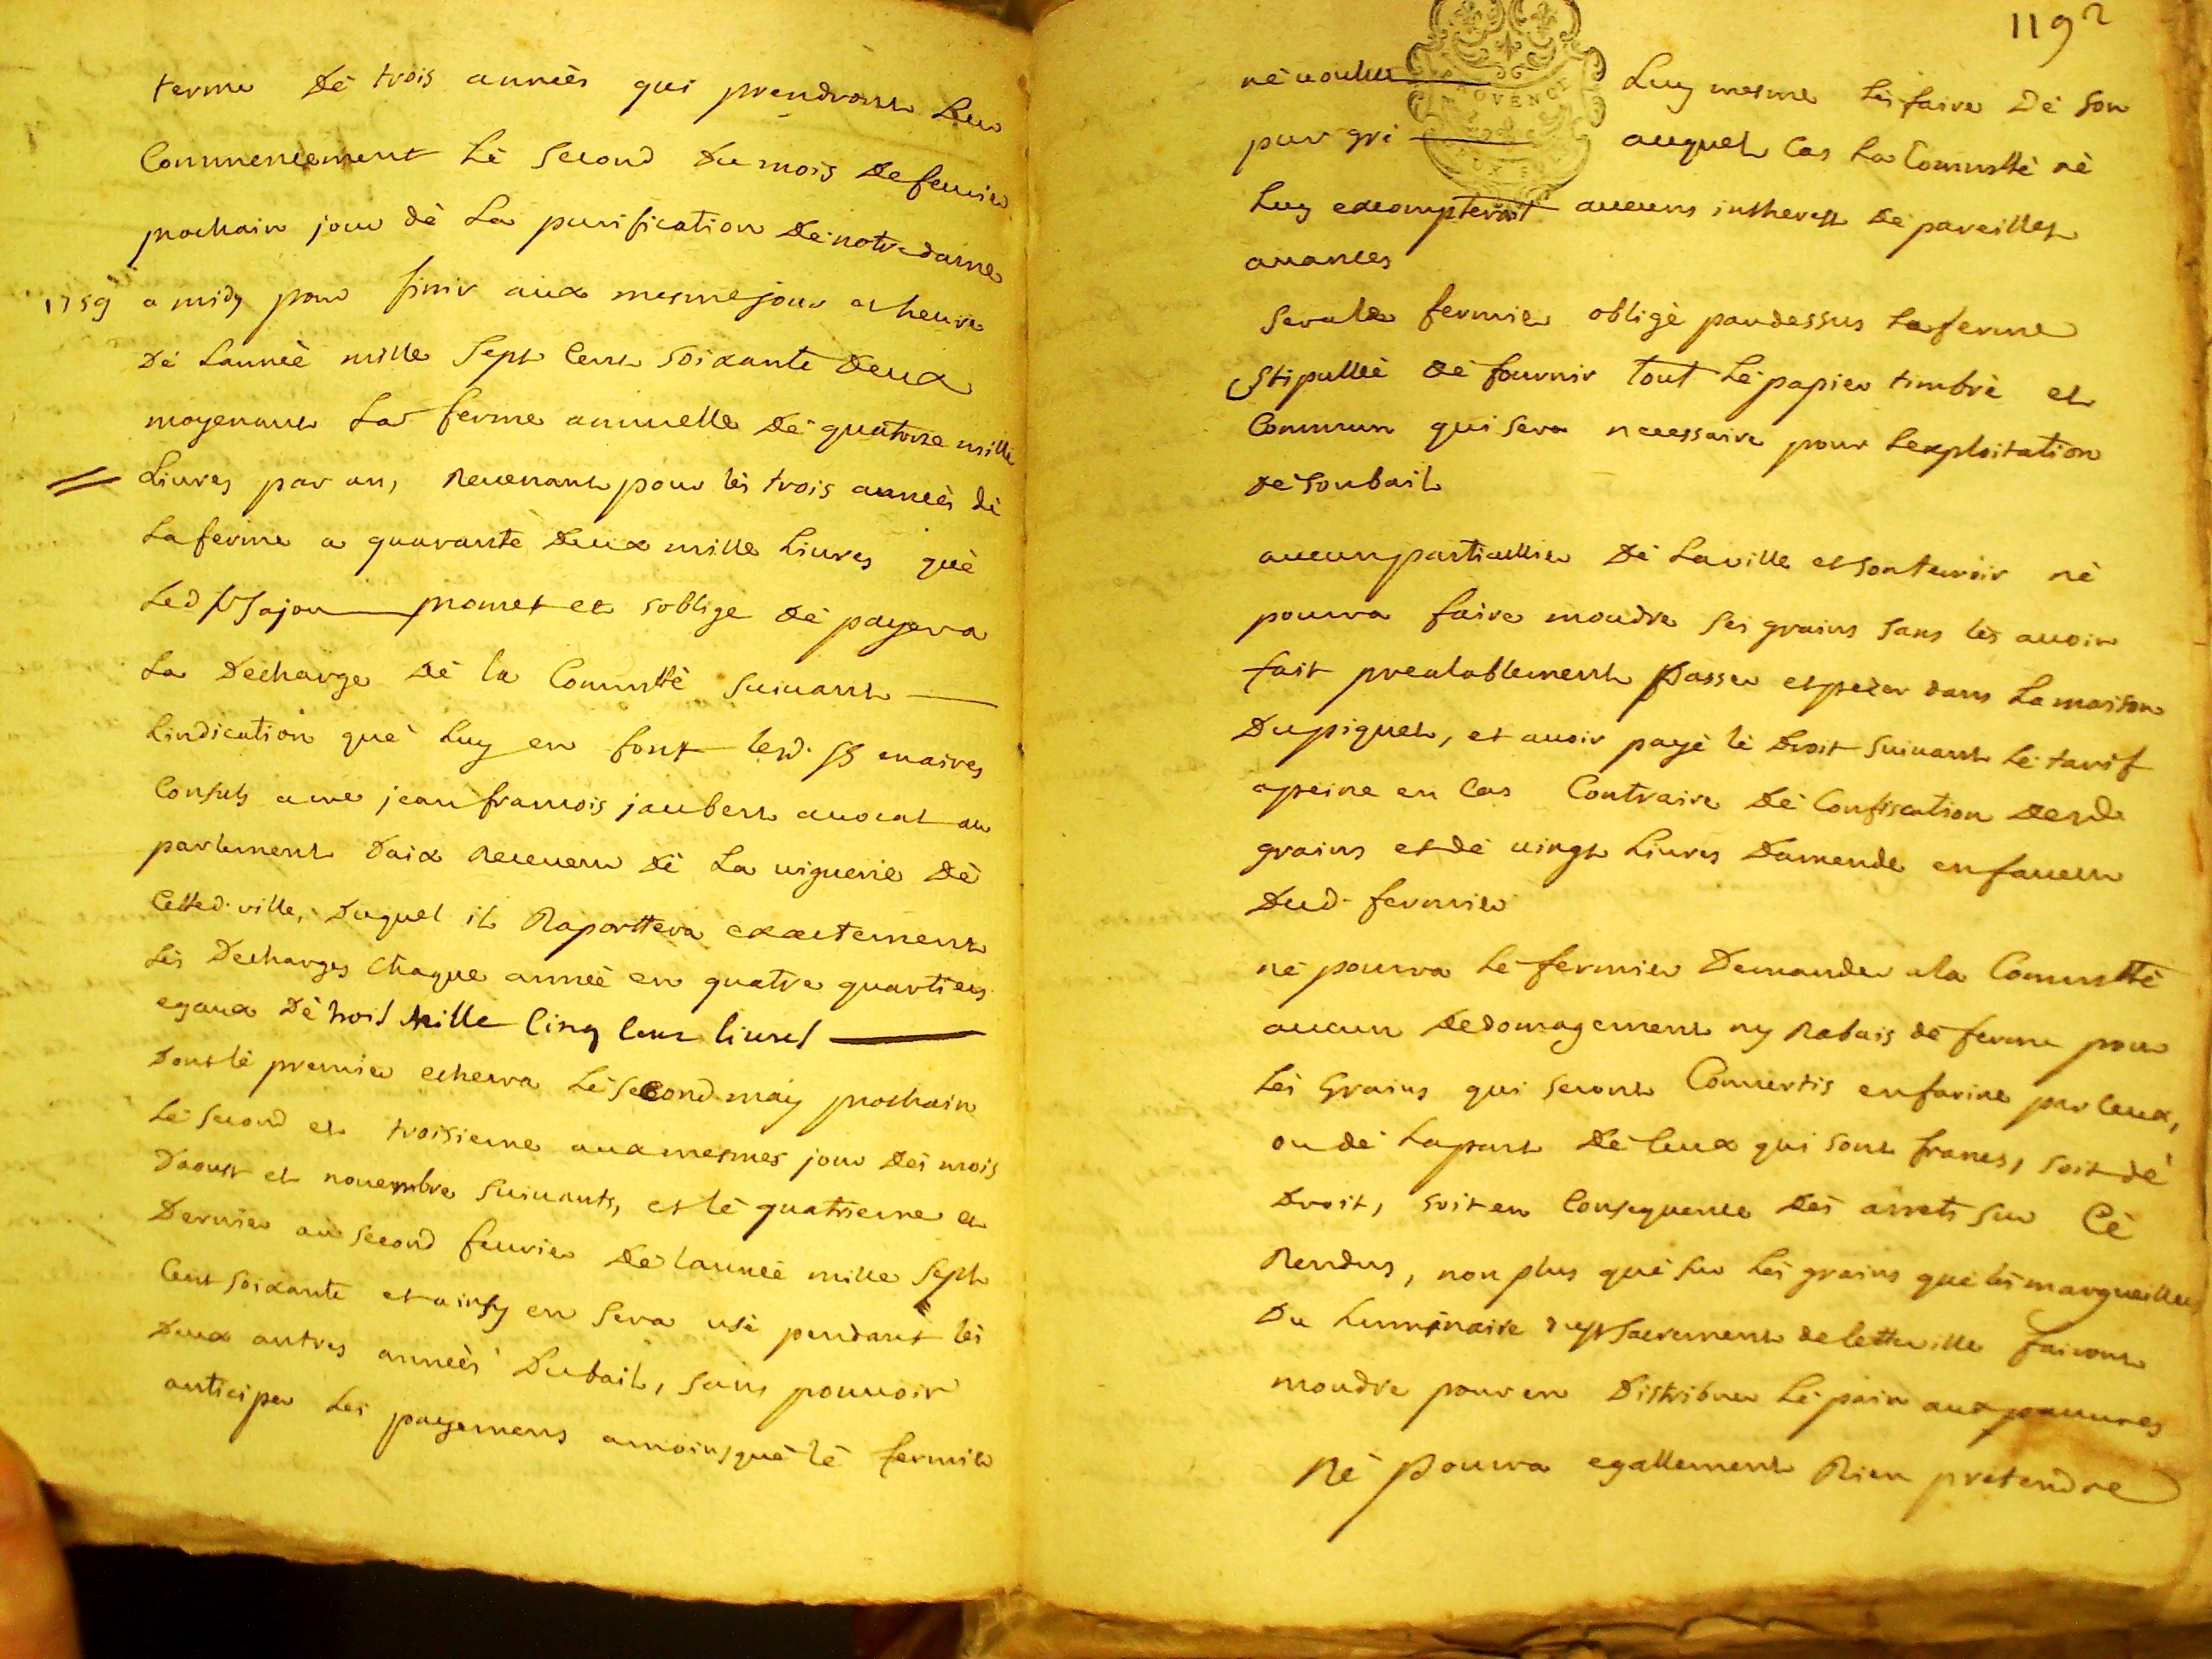 terme dè trois anneès qui prendront leur
Commencement lè second du mois de feurier
prochain jour dè la purification dè notredame
1759 a midy pour finir aux mesme jour et heure
dè lanneè mille sept cent soixante deux
moyenant la ferme annuelle dè quatorze mille
Liures par an, Reuenant pour lès trois anneès dè
la ferme a quarante deux mille liures què
led sr promet et soblige dè payer a
la decharge dè la Commttè suiuant
lindication què luy en font lesd. srs maires
Consuls a me jean francois jaubert auocat au
parlement daix Receueur dè la uiguerie dè
Cetted. ville, duquel il Raporttera exactement
lès decharges chaque anneè en quatre quartiers
egaux dè trois mille cinq cent liures
dont lè premier echerra lè second may prochain
lè second et troisieme aux mesmes jour dès mois
daoust et nouembre suiuants, et lè quatrieme et
dernier au second feurier dè lanneè mille sept
Cent soixante et ainsy en sera usè pendant lès
deux autres anneès du bail, sans pouuoir
anticiper lès payemens a moins què lè fermier
1192
PROVENCE
nè uoulut luy mesme lès faire dè son
pur grè auquel cas la Commttè nè
luy excompteroit aucuns inthèrest dè pareilles
auances
sera le fermier obligè pardessus la ferme
stipulleè dè fournir tout lè papier timbrè et
Commun qui sera necessaire pour lexploitation
dè son bail
aucun particullier dè la ville et son terroir nè
pourra faire moudre ses grains sans lès auoir
fait prealablement passer et pezer dans la maison
du piquet, et auoir payè lè droit suiuant lè tarif
a peine en cas Contraire dè Confiscation desd.
grains et dè uingt liures damende en faueur
dud. fermier
nè pourra lè fermier demander a la Commttè
aucun dedomagement ny Rabais dè ferme pour
lès Grains qui seront Conuertis en farine par Ceux,
ou dè la part dè Ceux qui sont francs, soit dè
droit, soit en Consequence dès arrets sur Cè
Rendus, non plus què sur lès grains què lès marguilliers
du luminaire du st sacrement de cette uille fairont
moudre pour en distribuer lè pain aux pauures
Nè pourra egallement Rien pretendre